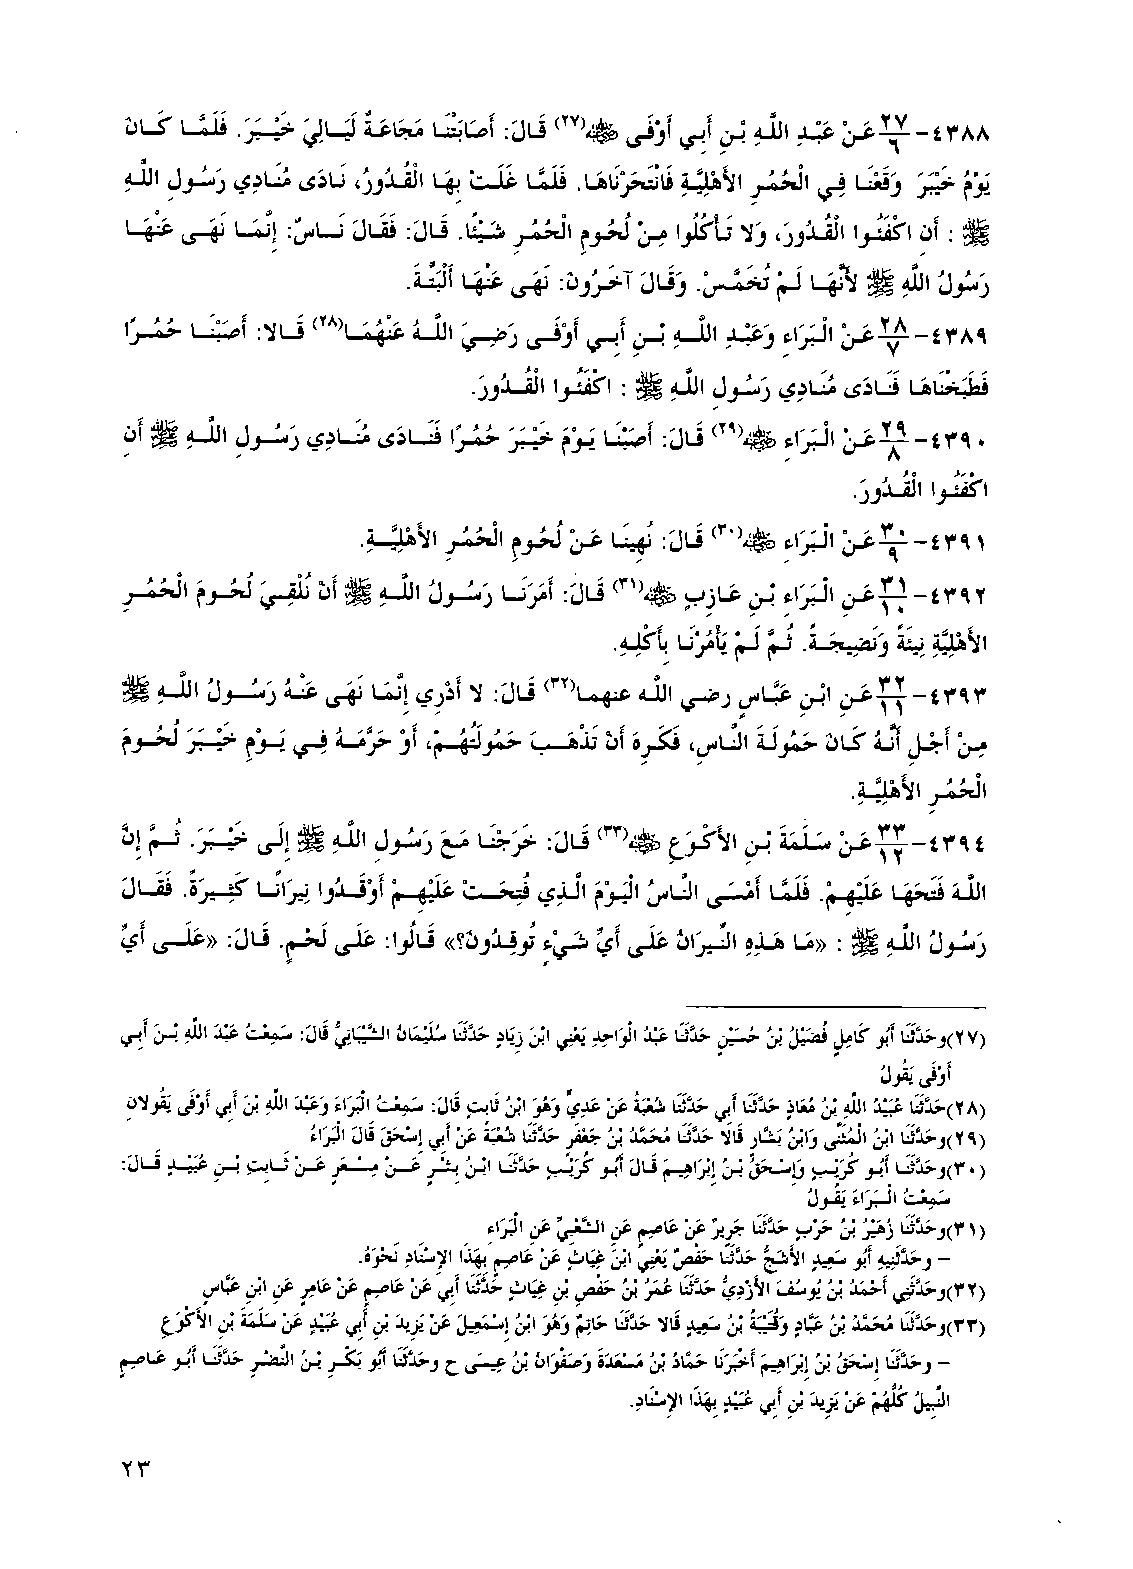 ٤٣٨٨- ٢٧/٦ عَنْ عَبْدِ اللَّهِ بْنِ أَبِي أَوْفَى ﷺ(٢٧) قَالَ: أَصَابَتْنَا مَجَاعَةٌ لَيَالِيَ خَيْبَرَ. فَلَمَّا كَانَ
يَوْمُ خَيْبَرَ وَقَعْنَا فِي الْحُمُرِ الأَهْلِيَّةِ فَانْتَحَرْنَاهَا. فَلَمَّا غَلَتْ بِهَا الْقُدُورُ، نَادَى مُنَادِي رَسُولِ اللَّهِ
ﷺ : أَنِ اكْفَئُوا الْقُدُورَ، وَلا تَأْكُلُوا مِنْ لُحُومِ الْحُمُرِ شَيْئًا. قَالَ: فَقَالَ نَاسٌ: إِنَّمَا نَهَى عَنْهَا
رَسُولُ اللَّهِ ﷺ لأَنَّهَا لَمْ تُخَمَّسْ. وَقَالَ آخَرُونَ: نَهَى عَنْهَا أَلْبَتَّةَ.
٤٣٨٩- ٢٨/٧ عَنْ الْبَرَاءِ وَعَبْدِ اللَّهِ بْنِ أَبِي أَوْفَى رَضِيَ اللَّهُ عَنْهُمَا(٢٨) قَالا: أَصَبْنَا حُمُرًا
فَطَبَخْنَاهَا فَنَادَى مُنَادِي رَسُولِ اللَّهِ ﷺ : اكْفَئُوا الْقُدُورَ.
٤٣٩٠- ٢٩/٨ عَنْ الْبَرَاءِ ﷺ(٢٩) قَالَ: أَصَبْنَا يَوْمَ خَيْبَرَ حُمُرًا فَنَادَى مُنَادِي رَسُولِ اللَّهِ ﷺ أَن
اكْفَئُوا الْقُدُورَ.
٤٣٩١- ٣٠/٩ عَنْ الْبَرَاءِ ﷺ(٣٠) قَالَ: نُهِينَا عَنْ لُحُومِ الْحُمُرِ الأَهْلِيَّةِ.
٤٣٩٢- ٣١/١٠ عَنِ الْبَرَاءِ بْنِ عَازِبٍ ﷺ(٣١) قَالَ: أَمَرَنَا رَسُولُ اللَّهِ ﷺ أَنْ نُلْقِيَ لُحُومَ الْحُمُرِ
الأَهْلِيَّةِ نِيئَةً وَنَضِيجَةً. ثُمَّ لَمْ يَأْمُرْنَا بِأَكْلِهِ.
٤٣٩٣- ٣٢/١١ عَنِ ابْنِ عَبَّاسٍ رضي الله عنهما(٣٢) قَالَ: لا أَدْرِي إِنَّمَا نَهَى عَنْهُ رَسُولُ اللَّهِ ﷺ
مِنْ أَجْلِ أَنَّهُ كَانَ حَمُولَةَ النَّاسِ، فَكَرِهَ أَنْ تَذْهَبَ حَمُولَتُهُمْ، أَوْ حَرَّمَهُ فِي يَوْمِ خَيْبَرَ لُحُومَ
الْحُمُرِ الأَهْلِيَّةِ.
٤٣٩٤- ٣٣/١٢ عَنْ سَلَمَةَ بْنِ الأَكْوَعِ ﷺ(٣٣) قَالَ: خَرَجْنَا مَعَ رَسُولِ اللَّهِ ﷺ إِلَى خَيْبَرَ. ثُمَّ إِنَّ
اللَّهَ فَتَحَهَا عَلَيْهِمْ. فَلَمَّا أَمْسَى النَّاسُ الْيَوْمَ الَّذِي فُتِحَتْ عَلَيْهِمْ أَوْقَدُوا نِيرَانًا كَثِيرَةً. فَقَالَ
رَسُولُ اللَّهِ ﷺ : «مَا هَذِهِ النِّيرَانُ عَلَى أَيِّ شَيْءٍ تُوقِدُونَ؟» قَالُوا: عَلَى لَحْمٍ. قَالَ: «عَلَى أَيِّ
(٢٧)وحَدَّثَنَا أَبُو كَامِلٍ فُضَيْلُ بْنُ حُسَيْنٍ حَدَّثَنَا عَبْدُ الْوَاحِدِ يَعْنِي ابْنَ زِيَادٍ حَدَّثَنَا سُلَيْمَانُ الشَّيْبَانِيُّ قَالَ: سَمِعْتُ عَبْدَ اللَّهِ بْنَ أَبِي
أَوْفَى يَقُولُ
(٢٨)حَدَّثَنَا عُبَيْدُ اللَّهِ بْنُ مُعَاذٍ حَدَّثَنَا أَبِي حَدَّثَنَا شُعْبَةُ عَنْ عَدِيٍّ وَهُوَ ابْنُ ثَابِتٍ قَالَ: سَمِعْتُ الْبَرَاءَ وَعَبْدَ اللَّهِ بْنَ أَبِي أَوْفَى يَقُولانِ
(٢٩)وحَدَّثَنَا ابْنُ الْمُثَنَّى وَابْنُ بَشَّارٍ قَالا حَدَّثَنَا مُحَمَّدُ بْنُ جَعْفَرٍ حَدَّثَنَا شُعْبَةُ عَنْ أَبِي إِسْحَقَ قَالَ الْبَرَاءُ
(٣٠)وحَدَّثَنَا أَبُو كُرَيْبٍ وَإِسْحَقُ بْنُ إِبْرَاهِيمَ قَالَ أَبُو كُرَيْبٍ حَدَّثَنَا ابْنُ بِشْرٍ عَنْ مِسْعَرٍ عَنْ ثَابِتِ بْنِ عُبَيْدٍ قَالَ:
سَمِعْتُ الْبَرَاءَ يَقُولُ
(٣١)وحَدَّثَنَا زُهَيْرُ بْنُ حَرْبٍ حَدَّثَنَا جَرِيرٌ عَنْ عَاصِمٍ عَنِ الشَّعْبِيِّ عَنِ الْبَرَاءِ
– وحَدَّثَنِيهِ أَبُو سَعِيدٍ الأَشَجُّ حَدَّثَنَا حَفْصٌ يَعْنِي ابْنَ غِيَاثٍ عَنْ عَاصِمٍ بِهَذَا الإِسْنَادِ نَحْوَهُ.
(٣٢)وحَدَّثَنِي أَحْمَدُ بْنُ يُوسُفَ الأَزْدِيُّ حَدَّثَنَا عُمَرُ بْنُ حَفْصِ بْنِ غِيَاثٍ حَدَّثَنَا أَبِي عَنْ عَاصِمٍ عَنْ عَامِرٍ عَنِ ابْنِ عَبَّاسٍ
(٣٣)وحَدَّثَنَا مُحَمَّدُ بْنُ عَبَّادٍ وَقُتَيْبَةُ بْنُ سَعِيدٍ قَالا حَدَّثَنَا حَاتِمٌ وَهُوَ ابْنُ إِسْمَعِيلَ عَنْ يَزِيدَ بْنِ أَبِي عُبَيْدٍ عَنْ سَلَمَةَ بْنِ الأَكْوَعِ
– وحَدَّثَنَا إِسْحَقُ بْنُ إِبْرَاهِيمَ أَخْبَرَنَا حَمَّادُ بْنُ مَسْعَدَةَ وَصَفْوَانُ بْنُ عِيسَى ح وحَدَّثَنَا أَبُو بَكْرِ بْنُ النَّضْرِ حَدَّثَنَا أَبُو عَاصِمٍ
النَّبِيلُ كُلُّهُمْ عَنْ يَزِيدَ بْنِ أَبِي عُبَيْدٍ بِهَذَا الإِسْنَادِ.
٢٣